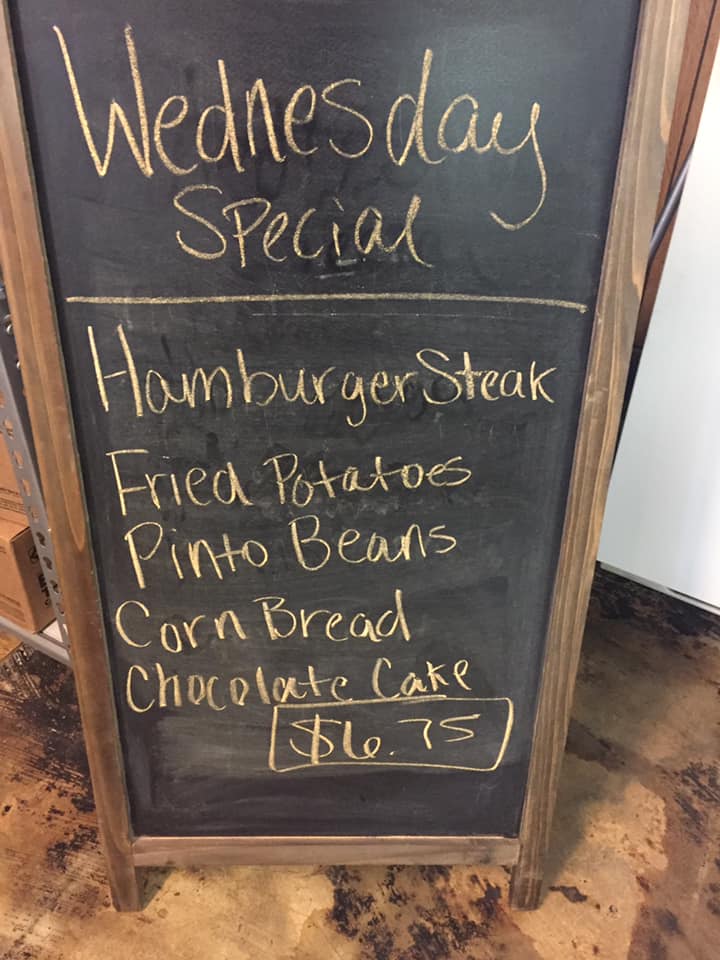 Wednesday
Special
Hamburger Steak
Fried Potatoes
Pinto Beans
Corn Bread
Chocolate Cake
$6.75